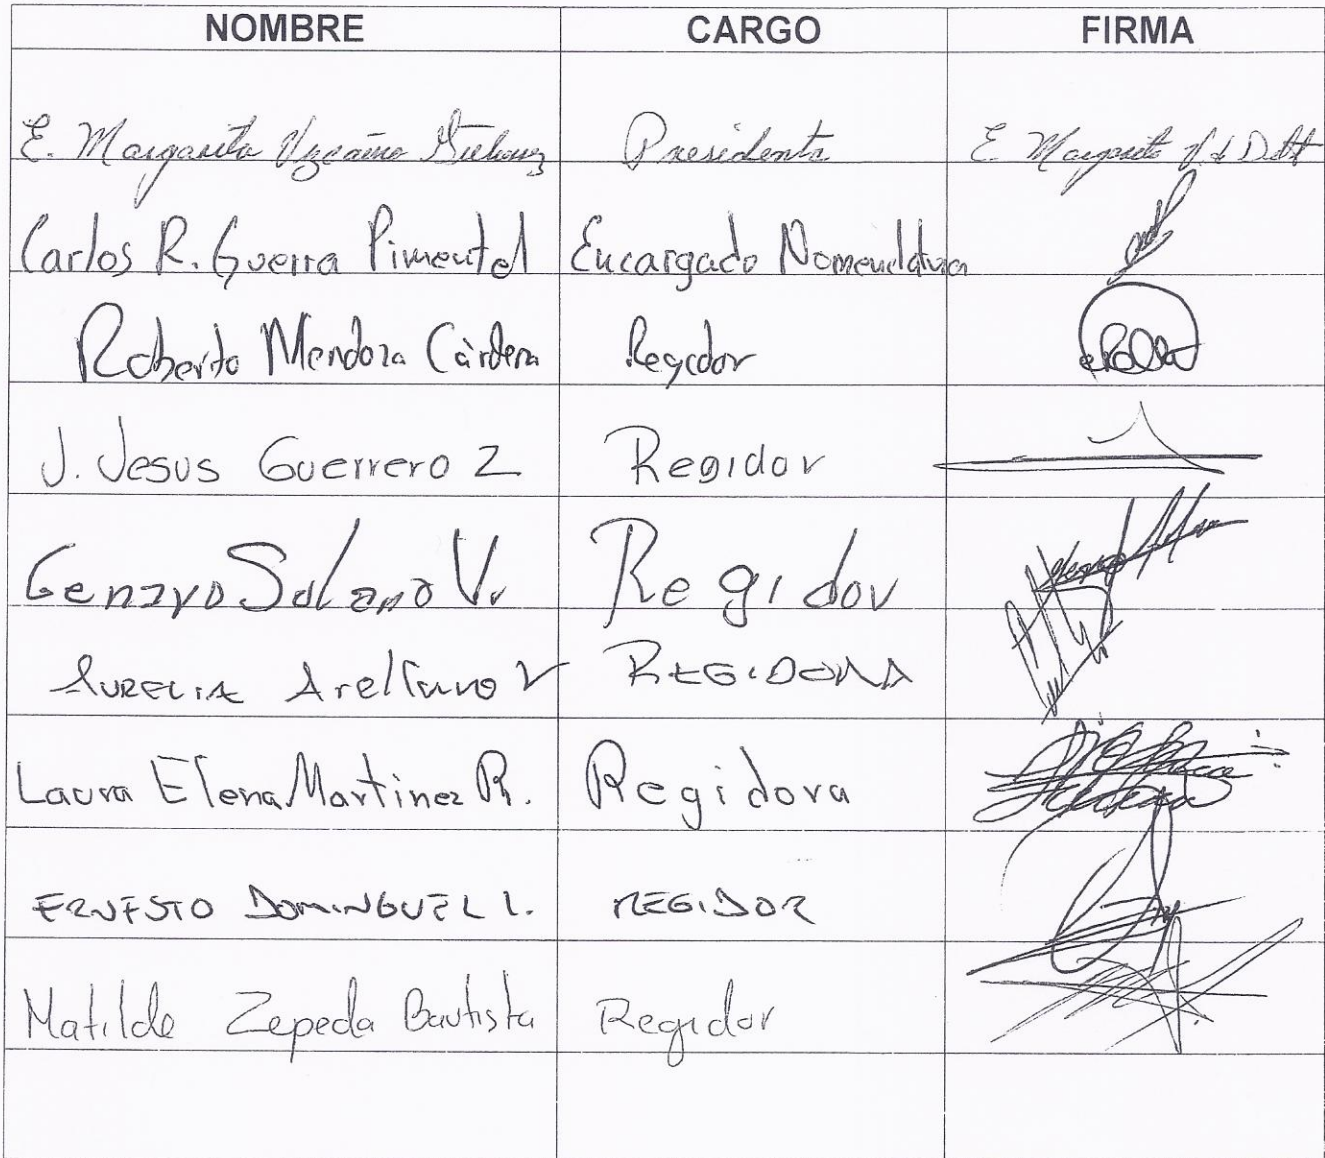 NOMBRE CARGO FIRMA
E. Margarita Vizcaino Presidenta E Margarita V. d
Carlos R. Guerra Pimentel Encargado Nomenclatura
Roberto Mendoza Cárdena Regidor
J. Jesus Guerrero Z Regidor
Genaro Solano V. Regidor
AURELIA Arellano V REGIDORA
Laura Elena Martinez R. Regidora
ERNESTO DOMINGUEZ L. REGIDOR
Matilde Zepeda Bautista Regidor